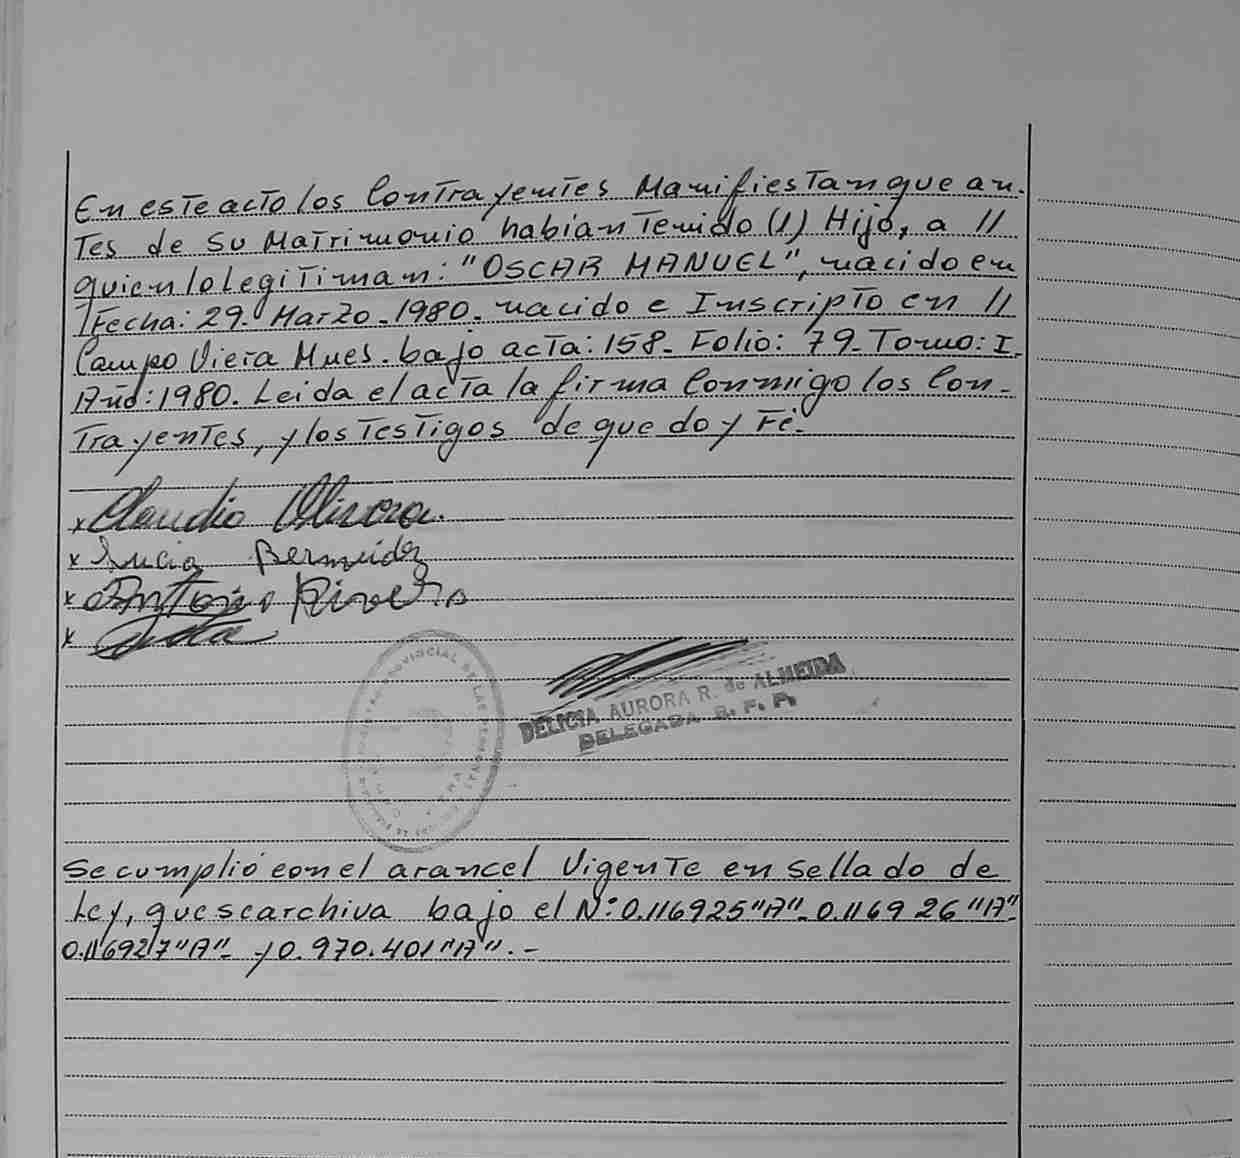 En este acto los Contrayentes Manifiestan que an-
tes de Su Matrimonio habían Tenido (1) Hijo, a //
quien lo legitiman: "OSCAR MANUEL", nacido en
Fecha: 29. Marzo - 1980. nacido e Inscripto en //
Campo Viera Mnes. bajo acta: 158- Folio: 79- Tomo: I.
Año: 1980. Leida el acta la firma Conmigo los Con-
trayentes, y los Testigos de que doy Fé.
x Claudio Olivera.
x Lucia Bermudez
x Antonio Rivero
x
PROVINCIAL DE LAS PERSONAS
DELICIA AURORA R. de ALMEIDA
DELEGADA R. P. P.
Se cumplió con el arancel Vigente en sellado de
Ley, que se archiva bajo el Nº 0.116925 "A"- 0.116926 "A"-
0.116927 "A"- y 0.970.401 "A".-